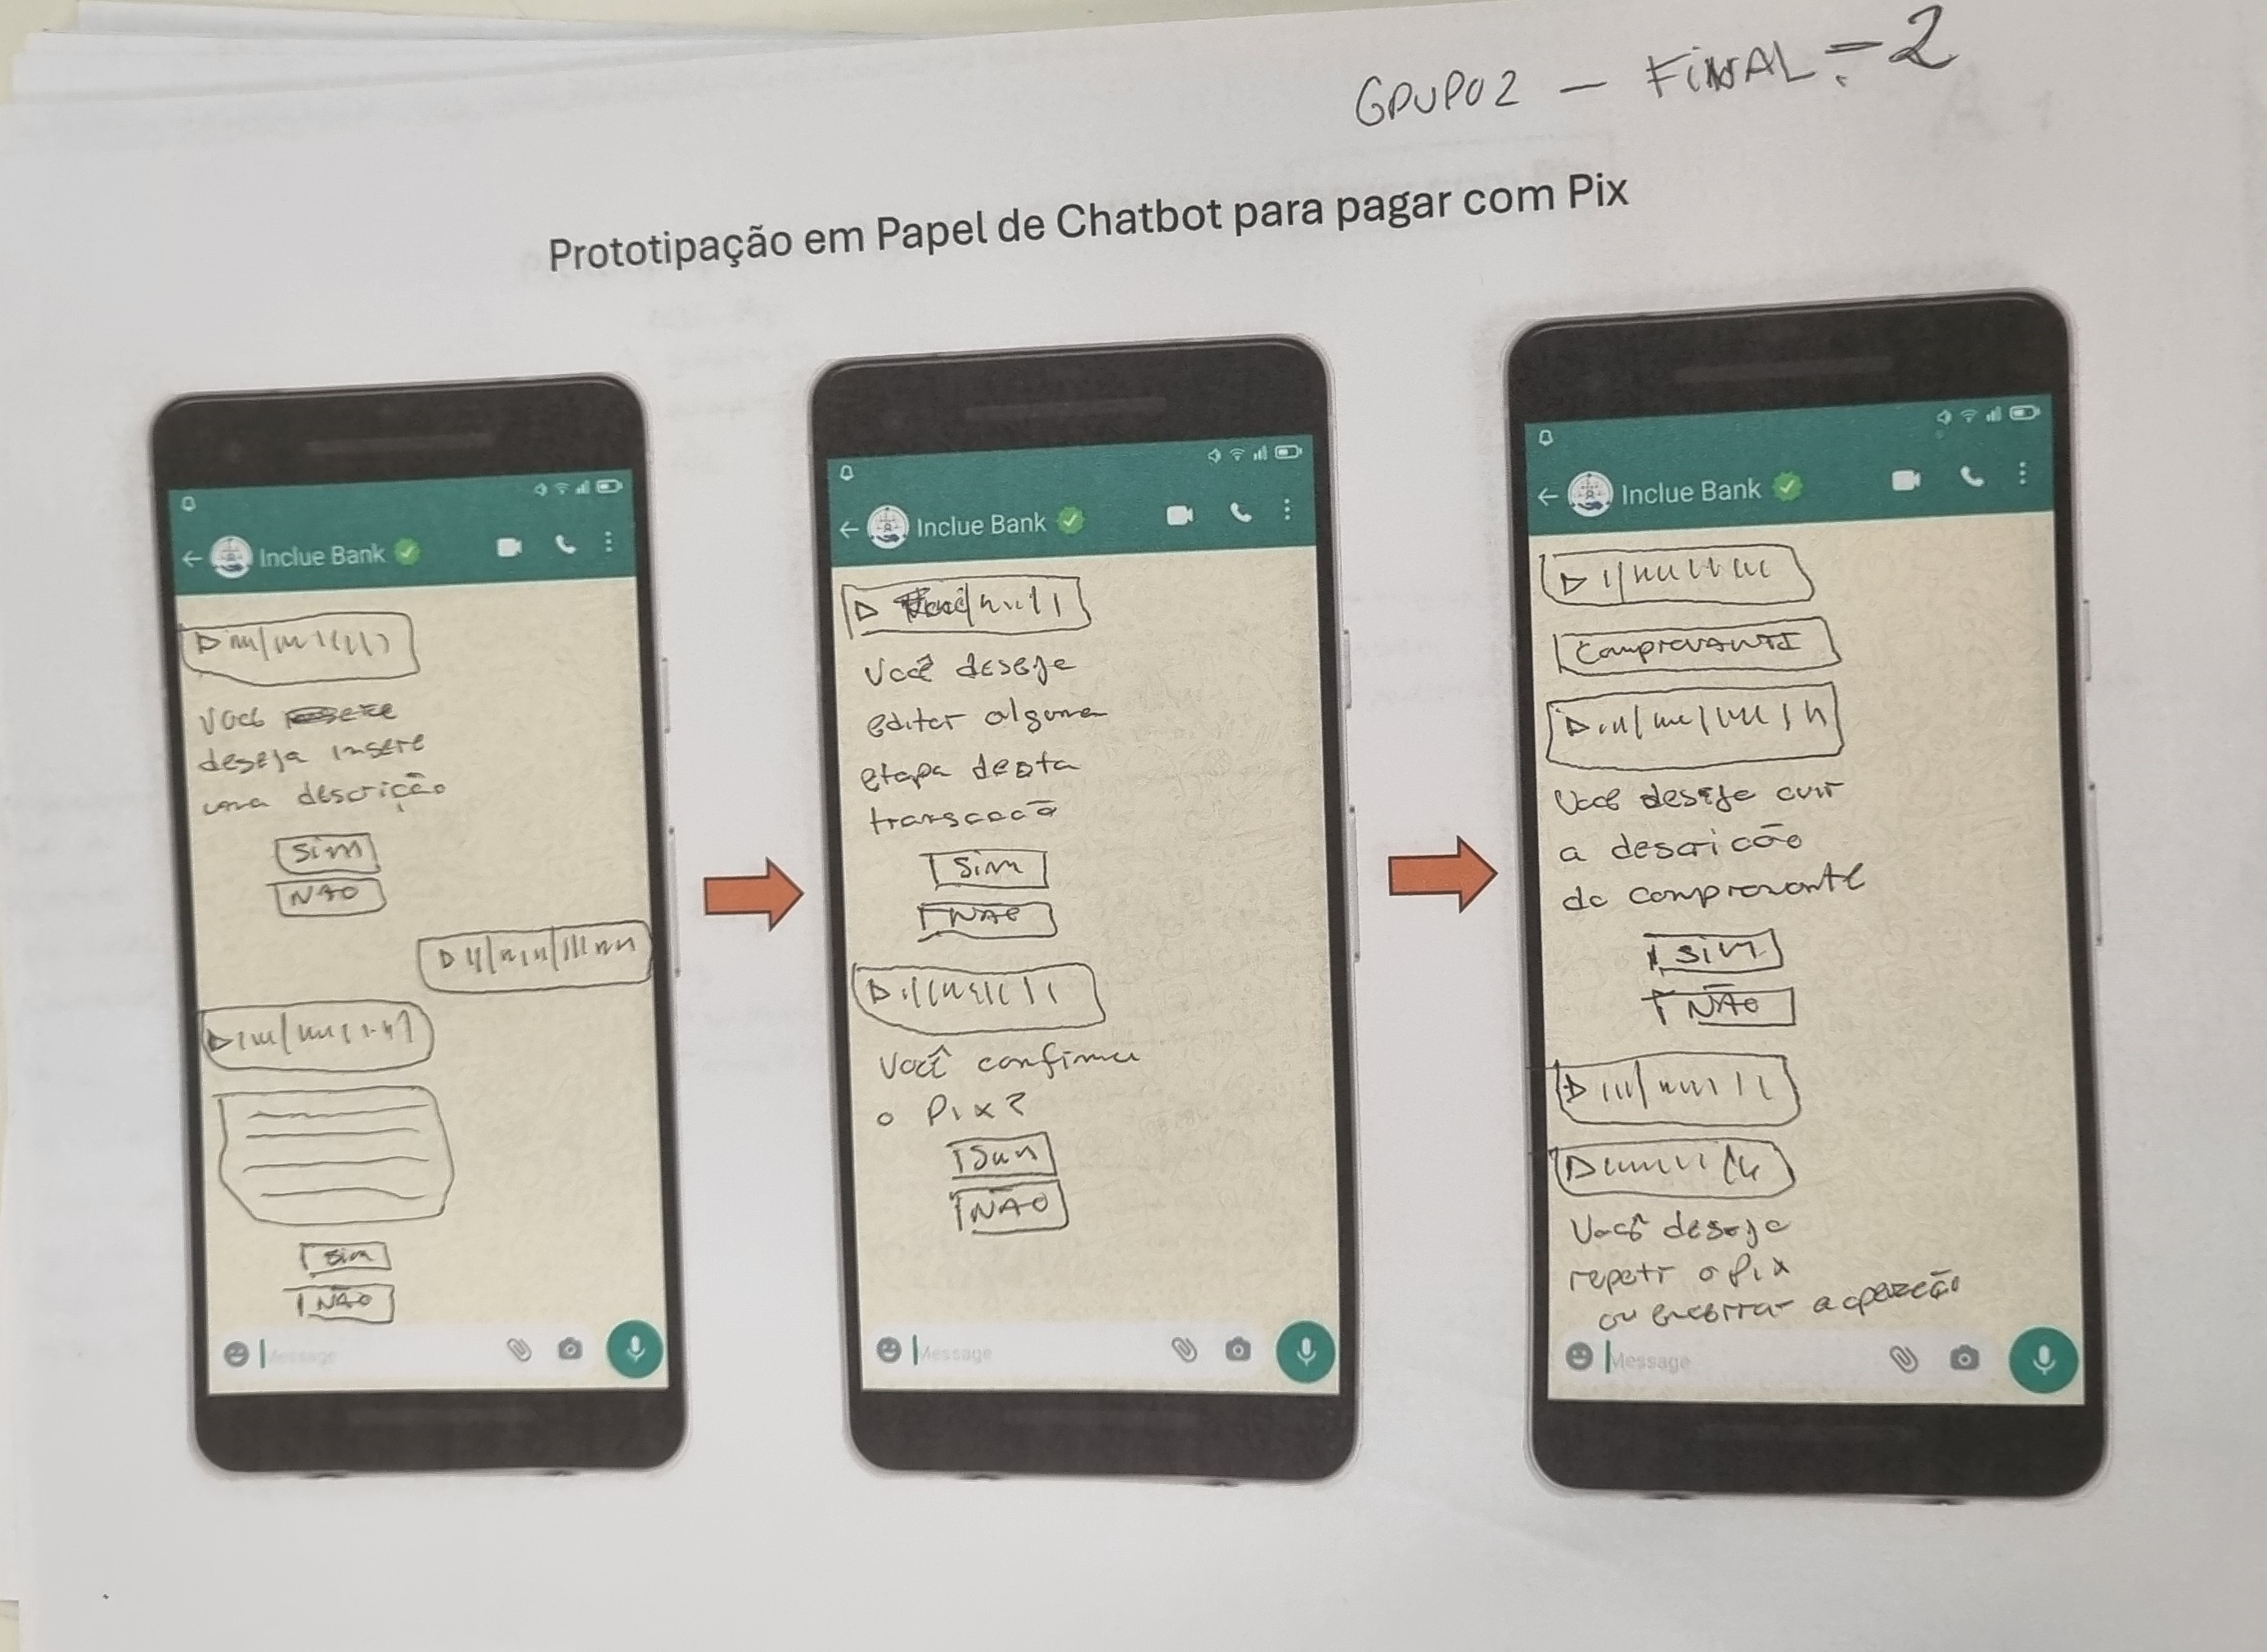 GRUPO 2 – FINAL: – 2
Prototipação em Papel de Chatbot para pagar com Pix
Inclue Bank
Você
deseja insere
uma descrição
SIM
NÃO
SIM
NÃO
Message
Inclue Bank
Você deseje
editar alguma
etapa desta
transcacão
SIM
NÃO
Você confirma
o Pix?
Sim
NÃO
Message
Inclue Bank
COMPROVANTE
Você deseje ouvir
a descricão
do comprovante
SIM
NÃO
Você deseja
repetir o Pix
ou encerrar a operação
Message